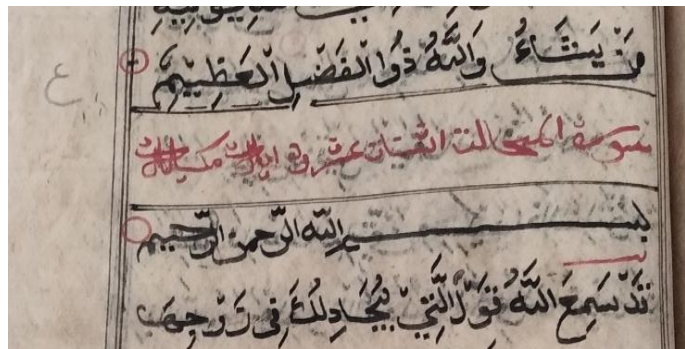 مَنْ يَشَاءُ وَاللَّهُ ذُوا الْفَضْلِ الْعَظِيمِ
سورة المجادلة اثنتان عشرون اياة
بسم الله الرحمن الرحيم
قَدْ سَمِعَ اللَّهُ قَوْلَ الَّتِي تُجَادِلُكَ فِي زَوْجِهَا
ع